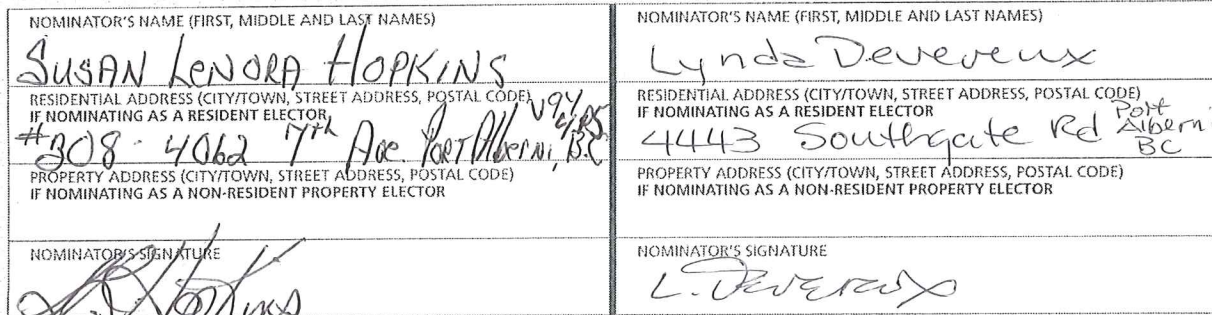 NOMINATOR'S NAME (FIRST, MIDDLE AND LAST NAMES)
SUSAN LENORA HOPKINS
RESIDENTIAL ADDRESS (CITY/TOWN, STREET ADDRESS, POSTAL CODE)
IF NOMINATING AS A RESIDENT ELECTOR
#308-4062 7th Ave. PORT Alberni, B.C V9Y
PROPERTY ADDRESS (CITY/TOWN, STREET ADDRESS, POSTAL CODE)
IF NOMINATING AS A NON-RESIDENT PROPERTY ELECTOR
NOMINATOR'S SIGNATURE
S. Hopkins
NOMINATOR'S NAME (FIRST, MIDDLE AND LAST NAMES)
Lynda Devereux
RESIDENTIAL ADDRESS (CITY/TOWN, STREET ADDRESS, POSTAL CODE)
IF NOMINATING AS A RESIDENT ELECTOR
4443 Southgate Rd Port Alberni BC
PROPERTY ADDRESS (CITY/TOWN, STREET ADDRESS, POSTAL CODE)
IF NOMINATING AS A NON-RESIDENT PROPERTY ELECTOR
NOMINATOR'S SIGNATURE
L. Devereux